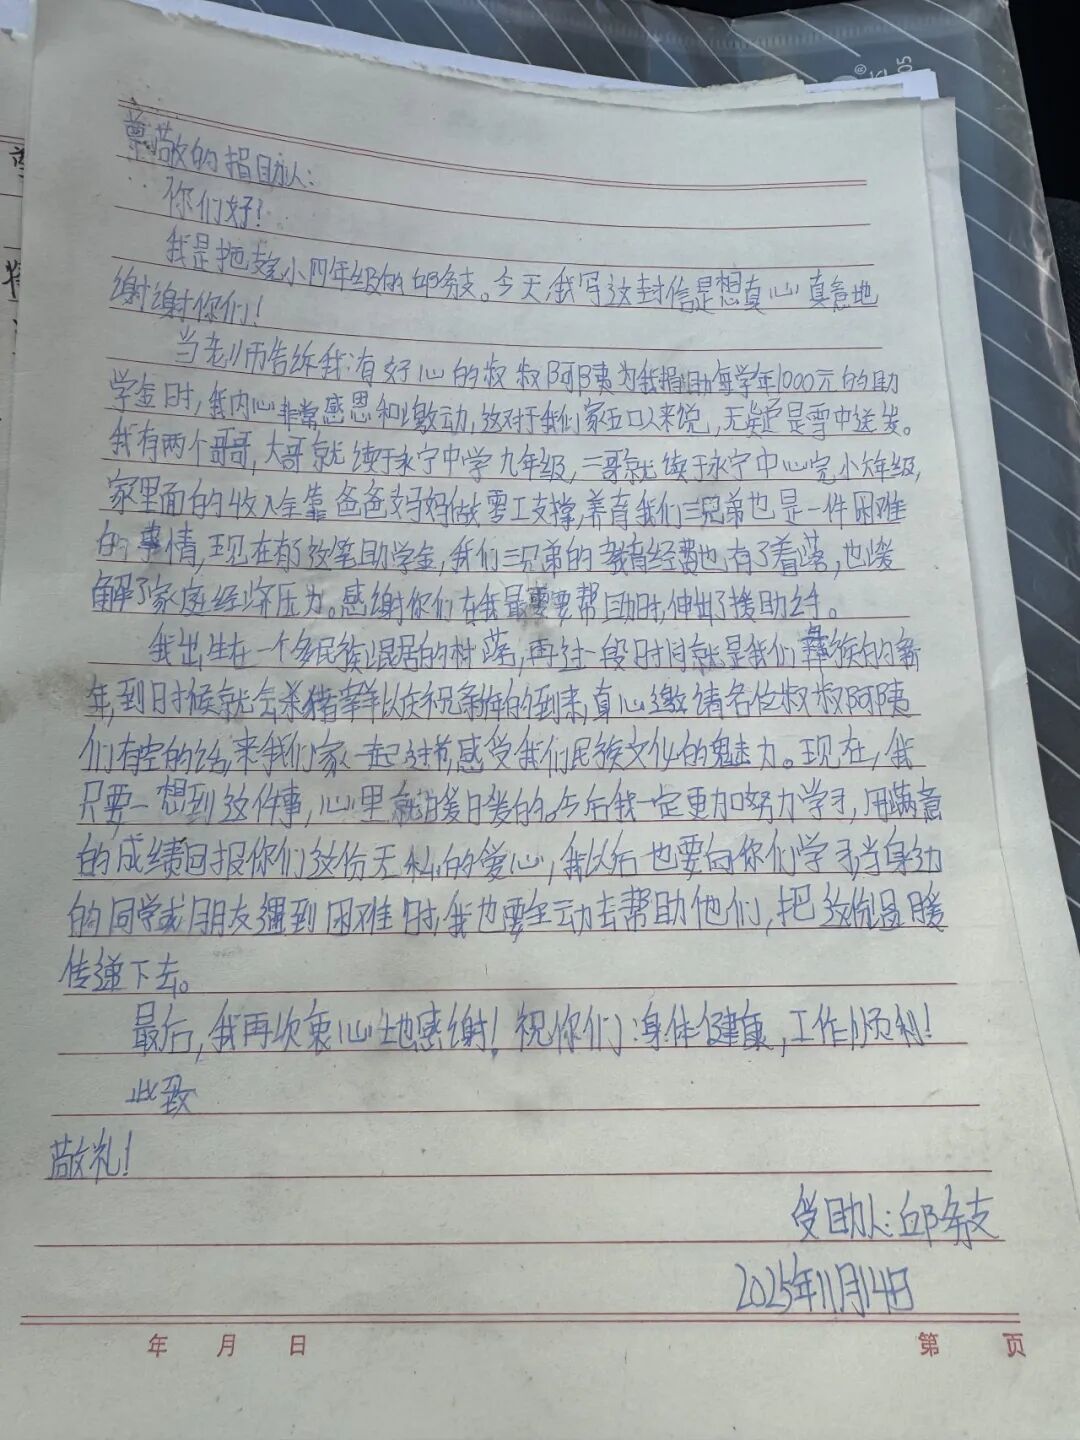 尊敬的捐助人:
你们好!
我是把支小四年级的邱余支。今天,我写这封信是想真心真意地
谢谢你们!
当老师告诉我:有好心的叔叔阿姨为我捐助每学年1000元的助
学金时,我内心非常感恩和激动,这对于我们家五口人来说,无疑是雪中送炭。
我有两个哥哥,大哥就读于永宁中学九年级,二哥就读于永宁中心完小六年级,
家里面的收入全靠爸爸妈妈做零工支撑,养育我们三兄弟也是一件困难
的事情,现在有了这笔助学金,我们三兄弟的教育经费也有了着落,也缓
解了家庭经济压力。感谢你们在我最需要帮助时,伸出了援助之手。
我出生在一个多民族混居的村落,再过一段时间就是我们彝族的新
年,到时候就会杀猪宰羊以庆祝新年的到来,真心邀请各位叔叔阿姨
们有空的话,来我们家一起过节,感受我们民族文化的魅力。现在,我
只要一想到这件事,心里就暖暖的。今后我一定更加努力学习,用满意
的成绩回报你们这份无私的爱心,我以后也要向你们学习,当身边
的同学或朋友遇到困难时,我也要主动去帮助他们,把这份温暖
传递下去。
最后,我再次衷心地感谢!祝你们:身体健康,工作顺利!
此致
敬礼!
受助人:邱余支
2025年11月14日
年 月 日 第 页
05